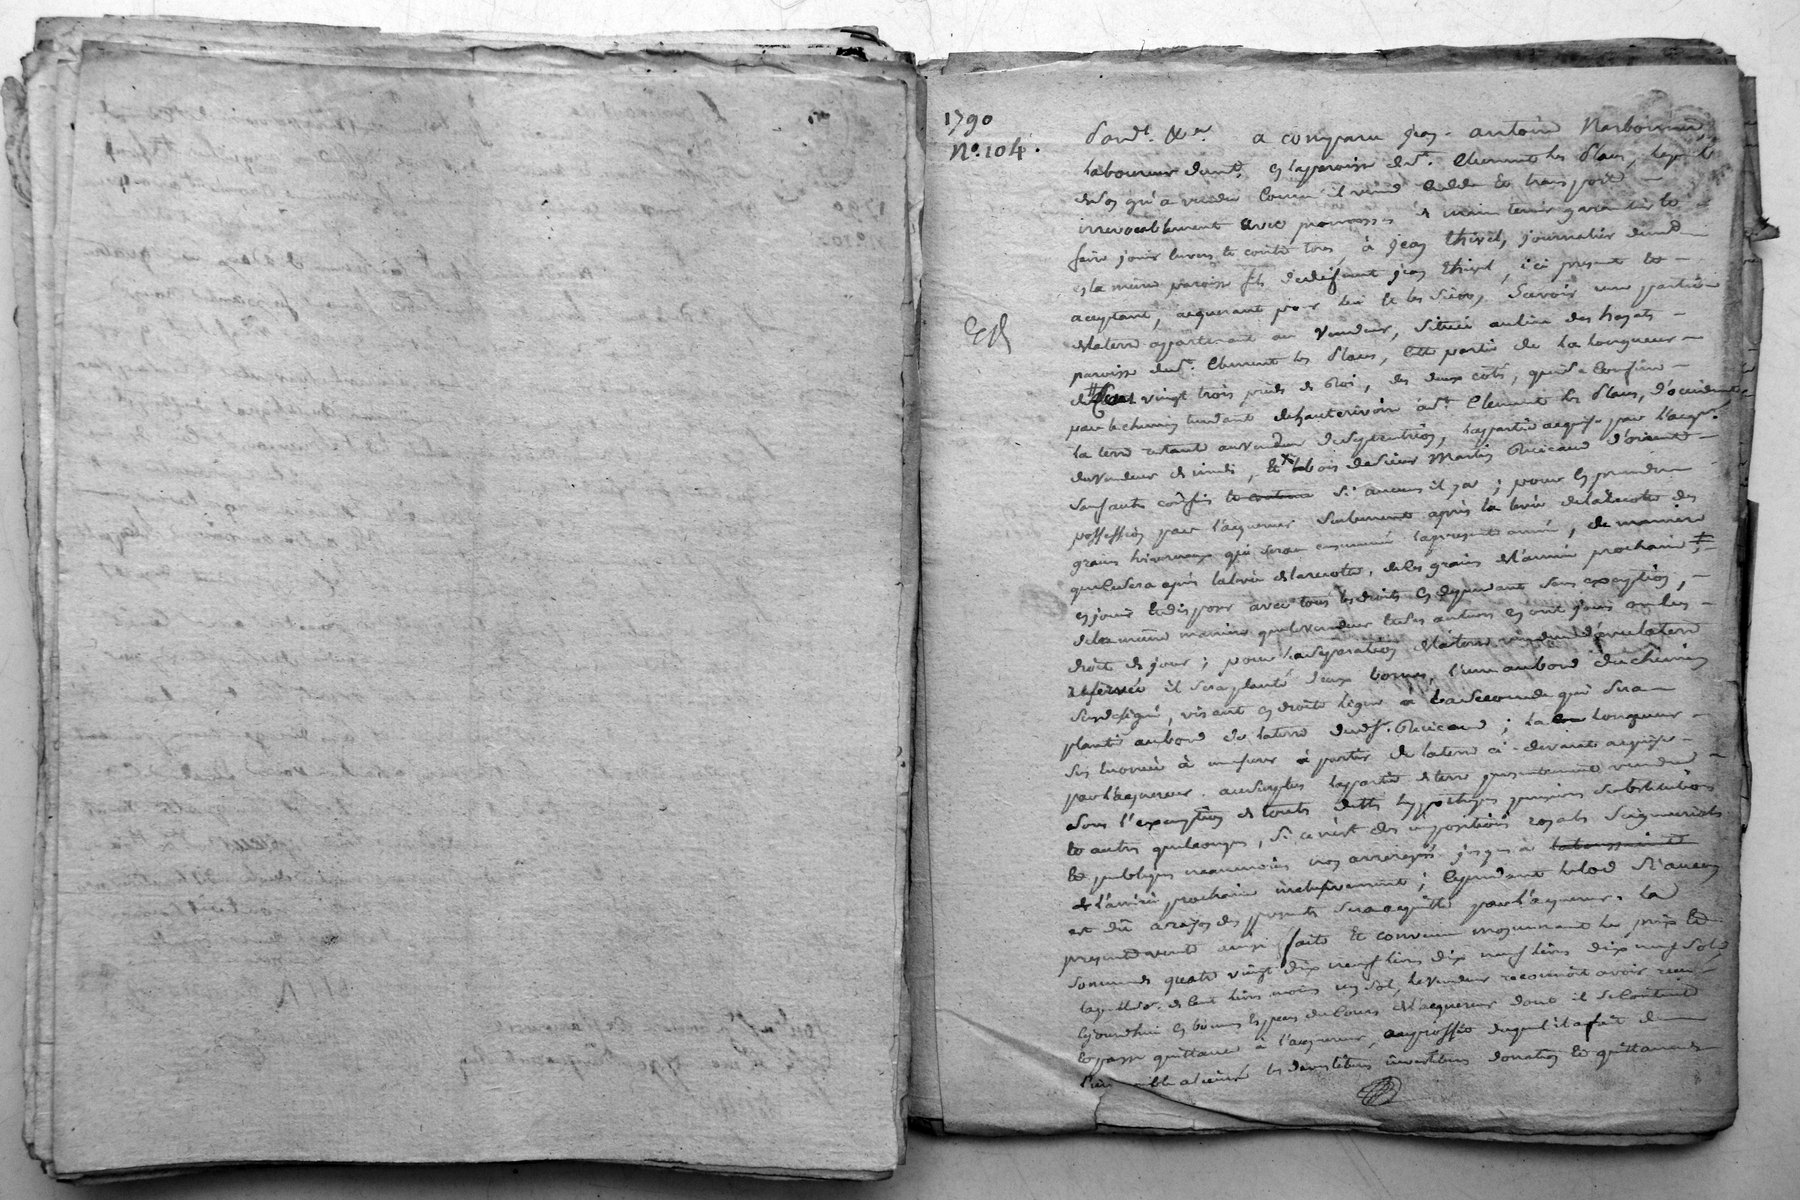 1790
N°. 104.
Pardt. &a. a comparu jean-antoine Narbonne
laboureur demt. en la paroisse de st. Clement les Places, lequel
de son gré a vendu comme il vend cede et transporte
irrevocablement avec promesses de maintenir garantir et
faire jouir envers et contre tous, à jean thivel, journalier demt
en la même paroisse fils de deffunt jean thivel, ici present et
aceptant, aquerant pour lui et les siens, Savoir une partie
de terre appartenant au Vendeur, Située au lieu des hayats
paroisse de st. Clement les Places, cette partie de la longueur
de vingt trois pieds de Roi, des deux cotés, qui se confine
par le chemin tendant de hauterivoire à st. Clement les Places, d'occident
la terre restant au Vendeur de septentrion, la partie aquise par l'aqr.
du vendeur de midi, et bois de sieur Martin d'orient
sauf autres confins si aucuns il y a ; pour en prendre
possession par l'aquereur seulement après la levée de la recolte des
grains hivernaux qui seront la presente année, de maniere
que ce sera après la levée de la recolte des grains de l'année prochaine
en jouir et disposer avec tous les droits en dependant sans exception,
de la même maniere que le vendeur et ses auteurs en ont joui ou eu
droit de jouir ; pour la separation de la terre vendue d'avec la terre
reservée il sera planté deux bornes, l'une au bord du chemin
susdesigné, visant en droite ligne à la seconde qui sera
plantée au bord de la terre dudt sr. ; la longueur
à mesurer à partir de la terre ci-devant aquise
par l'aquereur. au surplus la partie de terre presentement vendue
sous l'exemption de toutes dettes hypotheques pensions substitutions
et autres quelconques, si ce n'est des impositions royales seigneuriales
et publiques neanmoins non arreragés jusques à la toussaint
de l'année prochaine inclusivement ; cependant le lod si aucun
est dû à raison des presentes sera aquitté par l'aquereur. la
presente vente ainsi faite et convenue moyenant le prix et
somme de quatre vingt dix neuf livres dix neuf sols
de cent livres moins un sol, le vendeur reconnoit avoir reçu
cejourdhui en bonnes especes du cours de l'aquereur dont il se contente
et passe quittance à l'aquereur, au proffit duquel il a fait
les devestiture investiture donation et quittance